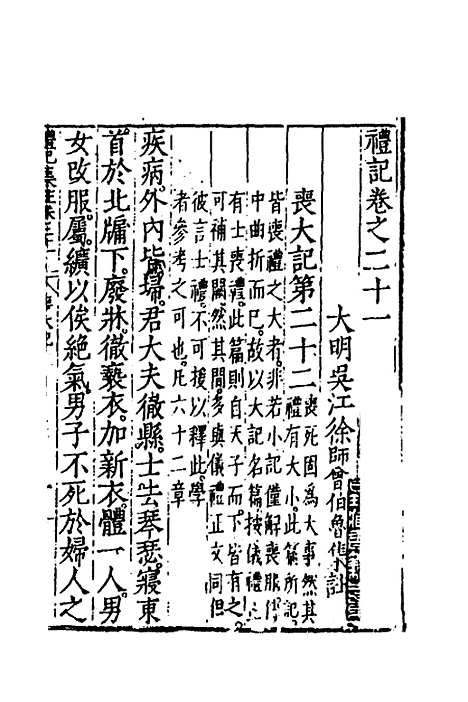 禮記卷之二十一
大明吳江徐師曾伯魯集註
喪大記第二十二
喪死固爲大事然其
禮有大小此篇所記
皆喪禮之大者非若小記僅解喪服傳
中曲折而已故以大記名篇按儀禮
有士喪禮此篇則自天子而下皆有之
可補其闕然其間多與儀禮正文同但
彼言士禮不可援以釋此學
者參考之可也凡六十二章
疾病外內皆埽君大夫徹縣士去琴瑟寢東
首於北牖下廢牀徹褻衣加新衣體一人男
女改服屬纊以俟絕氣男子不死於婦人之
禮記集註卷二十一 喪大記